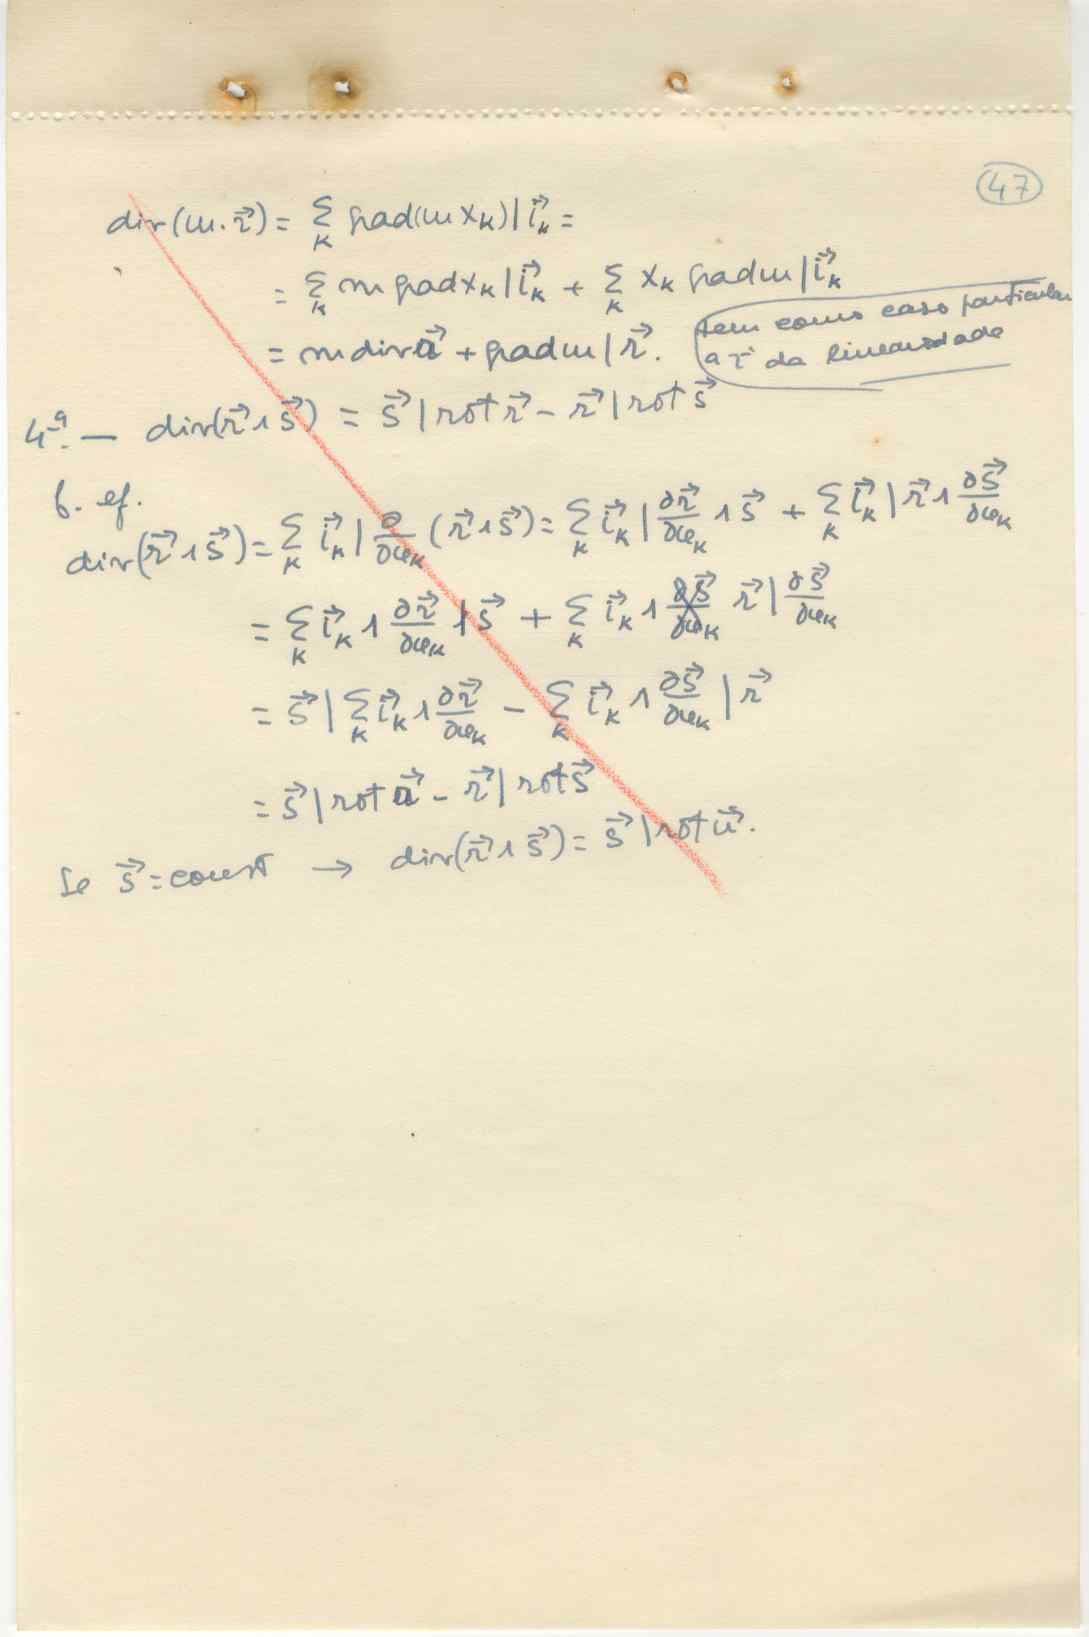 47
div(m.r⃗) = Σ_K grad(m x_K) | i⃗_K =
= Σ_K m grad x_K | i⃗_K + Σ_K x_K grad m | i⃗_K
= m div r⃗ + grad m | r⃗.
tem como caso particular
a 2ª da linearidade
4ª. — div(r⃗ ∧ s⃗) = s⃗ | rot r⃗ - r⃗ | rot s⃗
ef.
div(r⃗ ∧ s⃗) = Σ_K i⃗_K | ∂/∂x_K (r⃗ ∧ s⃗) = Σ_K i⃗_K | ∂r⃗/∂x_K ∧ s⃗ + Σ_K i⃗_K | r⃗ ∧ ∂s⃗/∂x_K
= Σ_K i⃗_K ∧ ∂r⃗/∂x_K | s⃗ + Σ_K i⃗_K ∧ r⃗ | ∂s⃗/∂x_K
= s⃗ | Σ_K i⃗_K ∧ ∂r⃗/∂x_K - Σ_K i⃗_K ∧ ∂s⃗/∂x_K | r⃗
= s⃗ | rot r⃗ - r⃗ | rot s⃗
Se s⃗ = const → div(r⃗ ∧ s⃗) = s⃗ | rot u⃗.